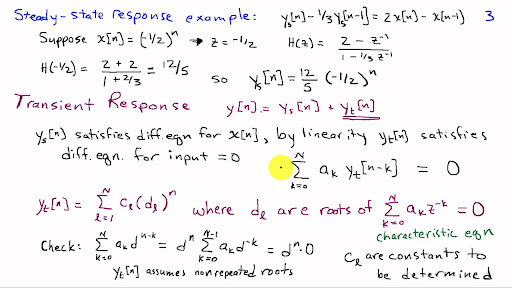 Steady-state response example: yₛ[n] - 1/3 yₛ[n-1] = 2x[n] - x[n-1] 3
Suppose x[n] = (-1/2)ⁿ → z = -1/2 H(z) = (2 - z⁻¹)/(1 - 1/3 z⁻¹)
H(-1/2) = (2 + 2)/(1 + 2/3) = 12/5 so yₛ[n] = 12/5 (-1/2)ⁿ
Transient Response y[n] = yₛ[n] + yₜ[n]
yₛ[n] satisfies diff. eqn for x[n], by linearity yₜ[n] satisfies
diff. eqn. for input = 0 ∑_{k=0}^{N} aₖ yₜ[n-k] = 0
yₜ[n] = ∑_{l=1}^{N} cₗ(dₗ)ⁿ where dₗ are roots of ∑_{k=0}^{N} aₖ z⁻ᵏ = 0
characteristic eqn
Check: ∑_{k=0}^{N} aₖ dⁿ⁻ᵏ = dⁿ ∑_{k=0}^{N-1} aₖ d⁻ᵏ = dⁿ·0
cₗ are constants to
yₜ[n] assumes nonrepeated roots
be determined